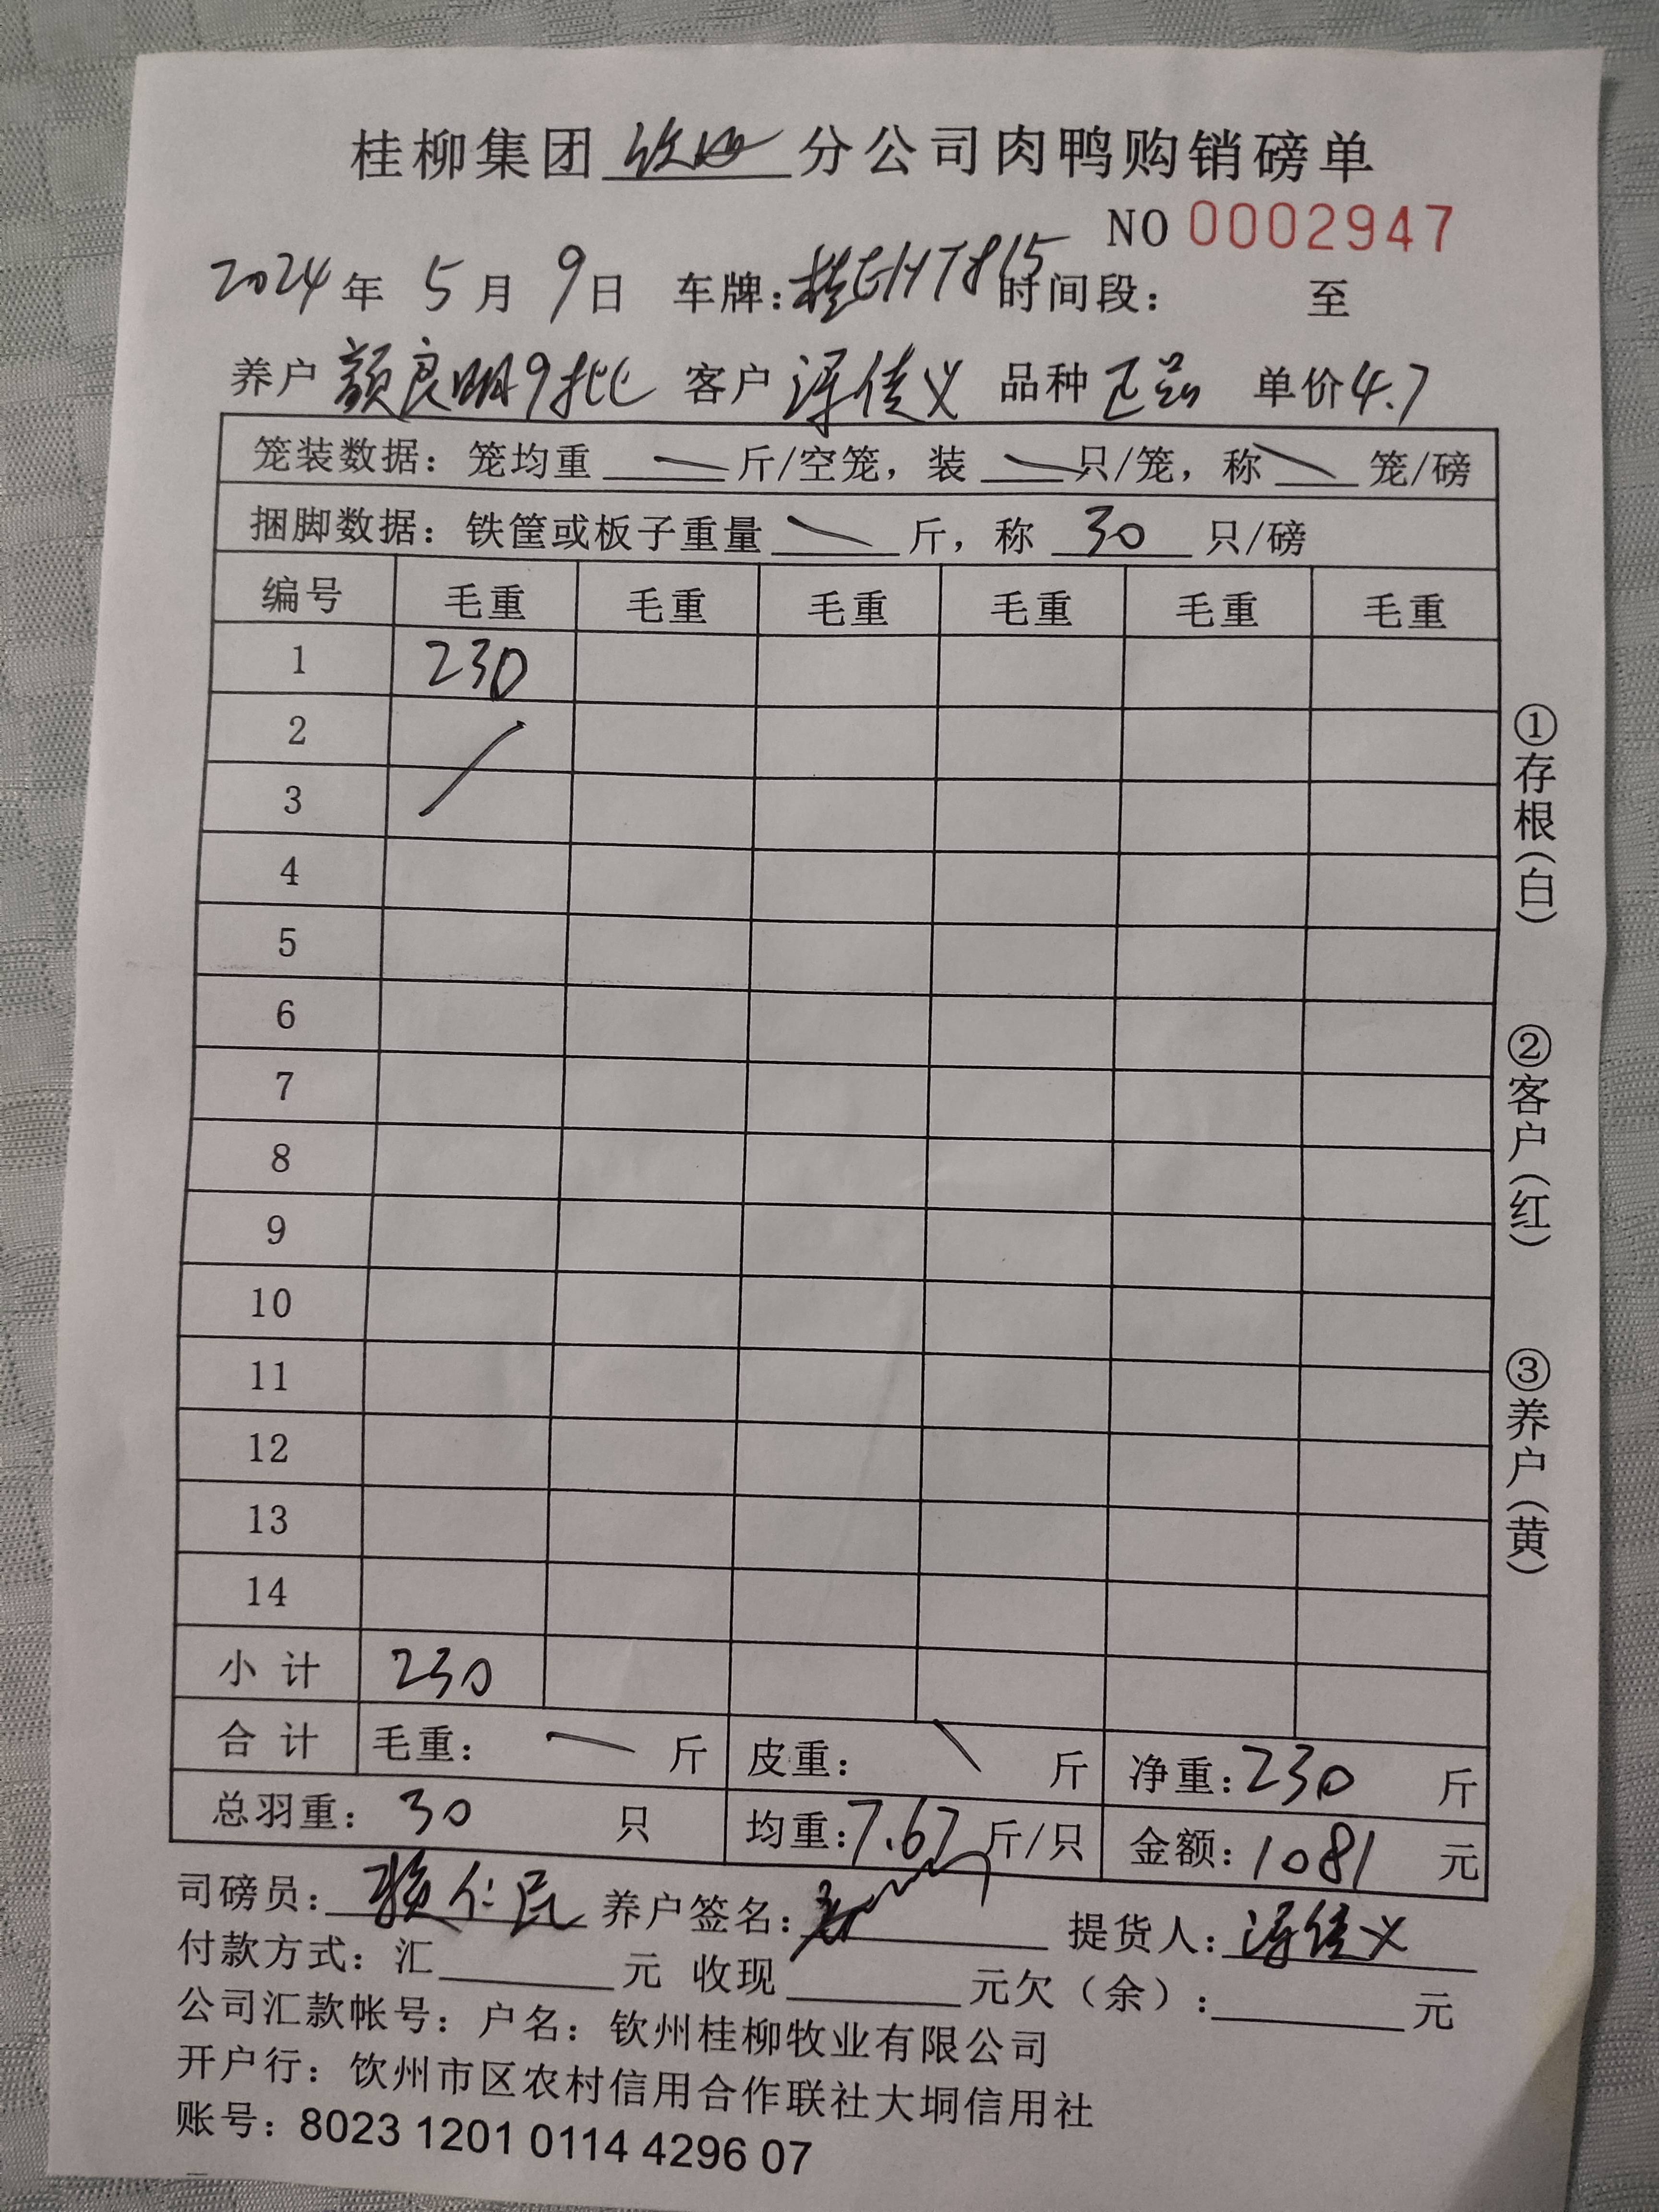 桂柳集团钦州分公司肉鸭购销磅单
NO 0002947
2024年 5月 9日 车牌:桂EHT815 时间段: 至
养户 颜良明9批 客户 佳义 品种 单价4.7
笼装数据:笼均重 — 斤/空笼,装 — 只/笼,称 — 笼/磅
捆脚数据:铁筐或板子重量 — 斤,称 30 只/磅
编号 毛重 毛重 毛重 毛重 毛重 毛重
1 230
2 /
3
4
5
6
7
8
9
10
11
12
13
14
小计 230
合计 毛重: — 斤 皮重: \ 斤 净重:230 斤
总羽重: 30 只 均重:7.67 斤/只 金额:1081 元
司磅员: 仁民 养户签名: 提货人: 佳义
付款方式:汇______元 收现______元欠(余):______元
公司汇款帐号:户名:钦州桂柳牧业有限公司
开户行:钦州市区农村信用合作联社大垌信用社
账号:8023 1201 0114 4296 07
①存根(白)
②客户(红)
③养户(黄)